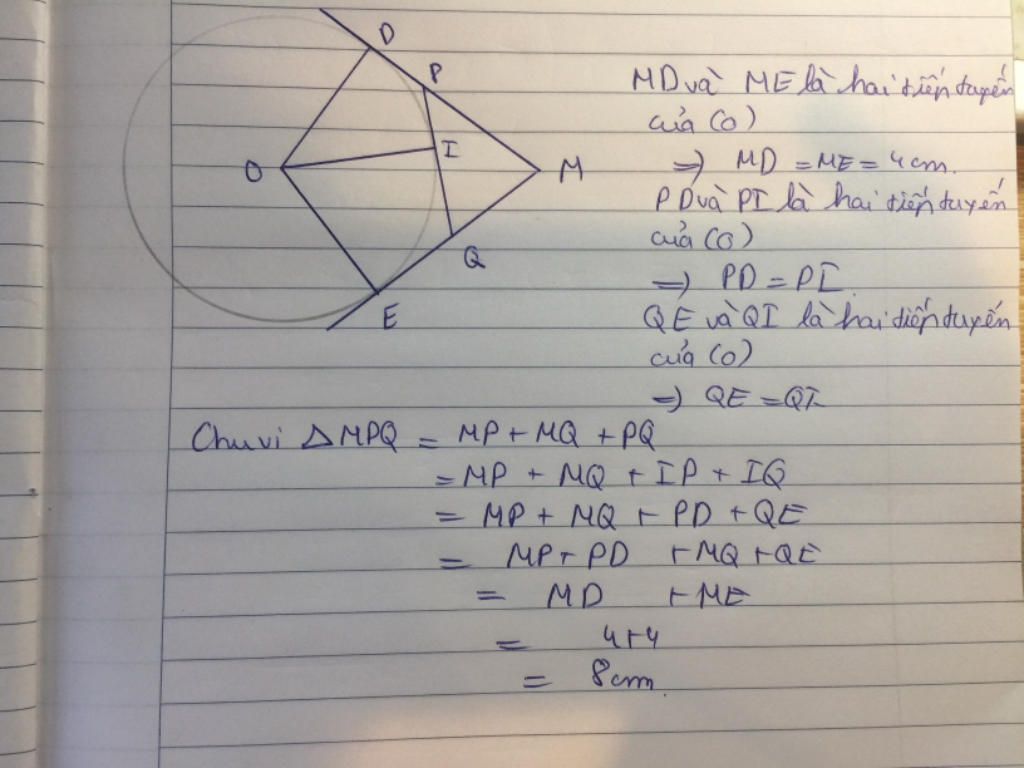 D
P
O
I
M
Q
E
MD và ME là hai tiếp tuyến
của (O)
=) MD = ME = 4cm.
PD và PI là hai tiếp tuyến
của (O)
=) PD = PI.
QE và QI là hai tiếp tuyến
của (O)
=) QE = QI
Chu vi △MPQ = MP + MQ + PQ
= MP + MQ + IP + IQ
= MP + MQ + PD + QE
= MP + PD + MQ + QE
= MD + ME
= 4+4
= 8cm.